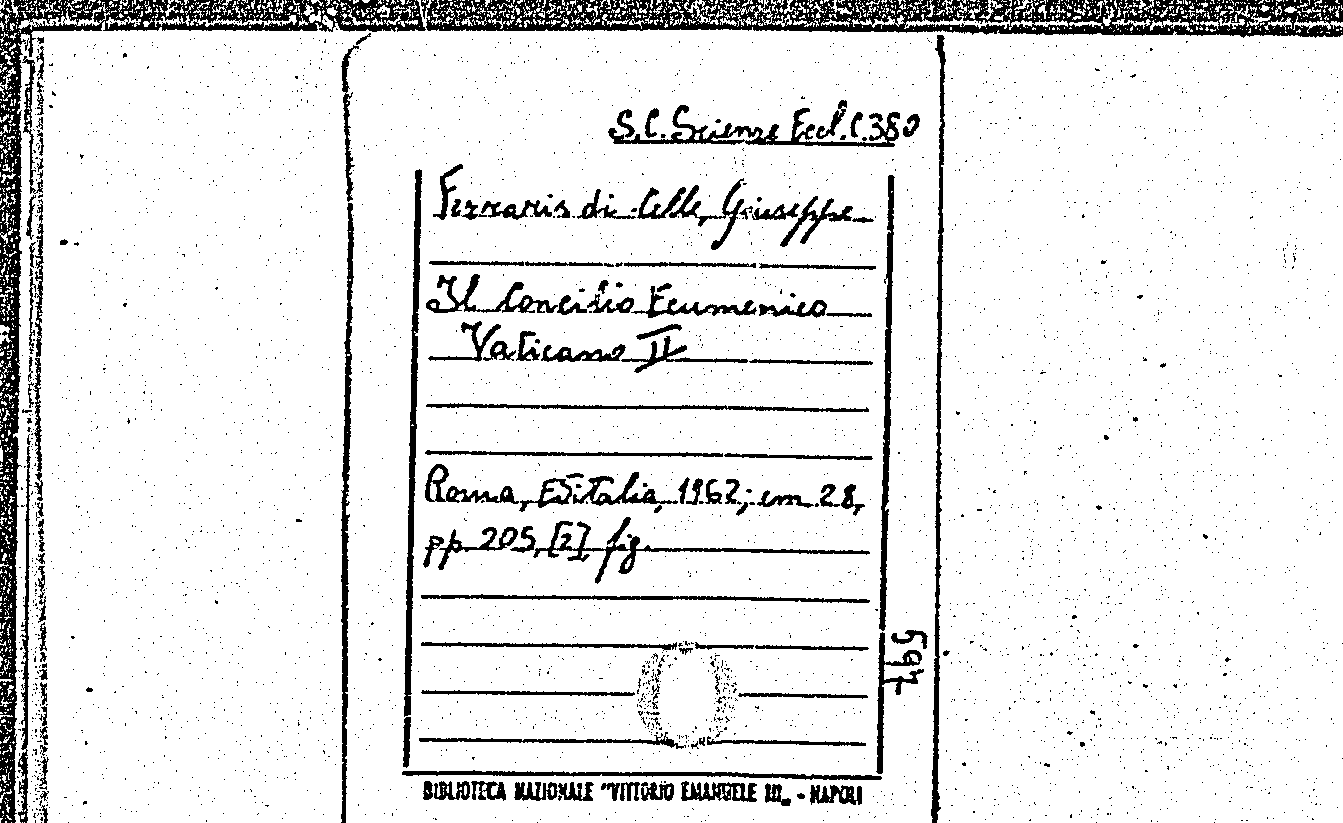 S.C. Scienze Eccl. C. 380
Ferraris di Celle, Giuseppe
Il Concilio Ecumenico
Vaticano II
Roma, Editalia, 1962; cm 28,
pp. 205, [2], fig.
BIBLIOTECA NAZIONALE "VITTORIO EMANUELE III„ - NAPOLI